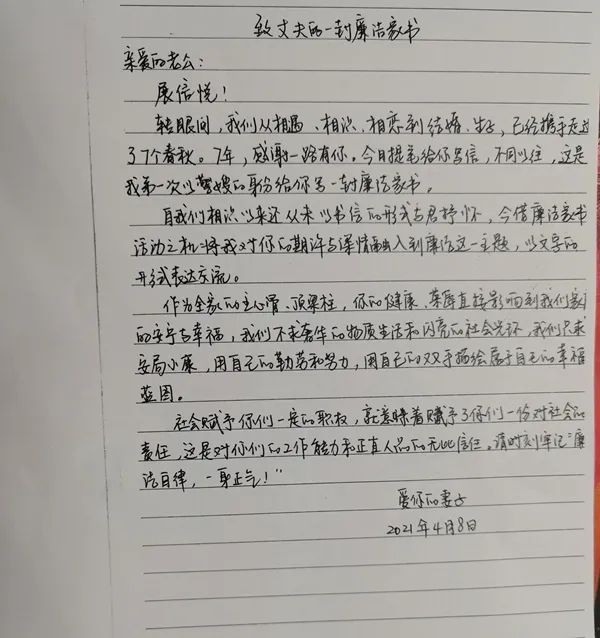 致丈夫的一封廉洁家书
亲爱的老公:
展信悦!
转眼间,我们从相遇、相识、相恋到结婚、生子,已经携手走过
了7个春秋。7年,感谢一路有你。今日提笔给你写信,不同以往,这是
我第一次以贤嫂的身份给你写一封廉洁家书。
自我们相识以来还从未以书信的形式与君抒怀,今借廉洁家书
活动之机将我对你的期许与深情融入到廉洁这一主题,以文字的
形式表达交流。
作为全家的主心骨、顶梁柱,你的健康、荣辱直接影响到我们家
的安宁与幸福,我们不求奢华的物质生活和闪亮的社会光环,我们只求
安居小康,用自己的勤劳和努力,用自己的双手描绘属于自己的幸福
蓝图。
社会赋予你们一定的职权,就意味着赋予了你们一份对社会的
责任,这是对你们的工作能力和正直人品的无比信任。请时刻牢记“廉
洁自律,一身正气!”
爱你的妻子
2021年4月8日